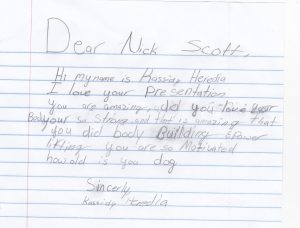 Dear Nick Scott,
Hi my name is Kassidy Heredia
I love your Presentation
you are amazing, did you love your
Body your so strong and that is amazing that
you did body Building & Power
lifting you are so Motivated
how old is you dog
Sincerly,
Kassidy Heredia